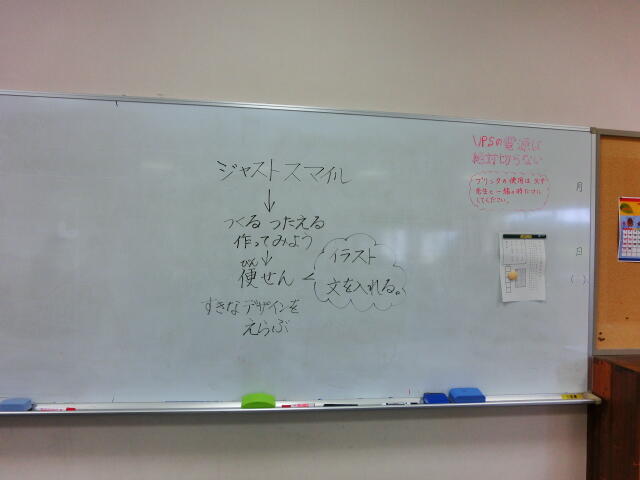 ジャストスマイル
↓
つくる つたえる
作ってみよう
↓
びん
便せん
すきなデザインを
えらぶ
イラスト
文を入れる。
UPSの電源は
絶対切らない
プリンタの使用は必ず
先生と一緒の時だけに
してください。
月
日
( )